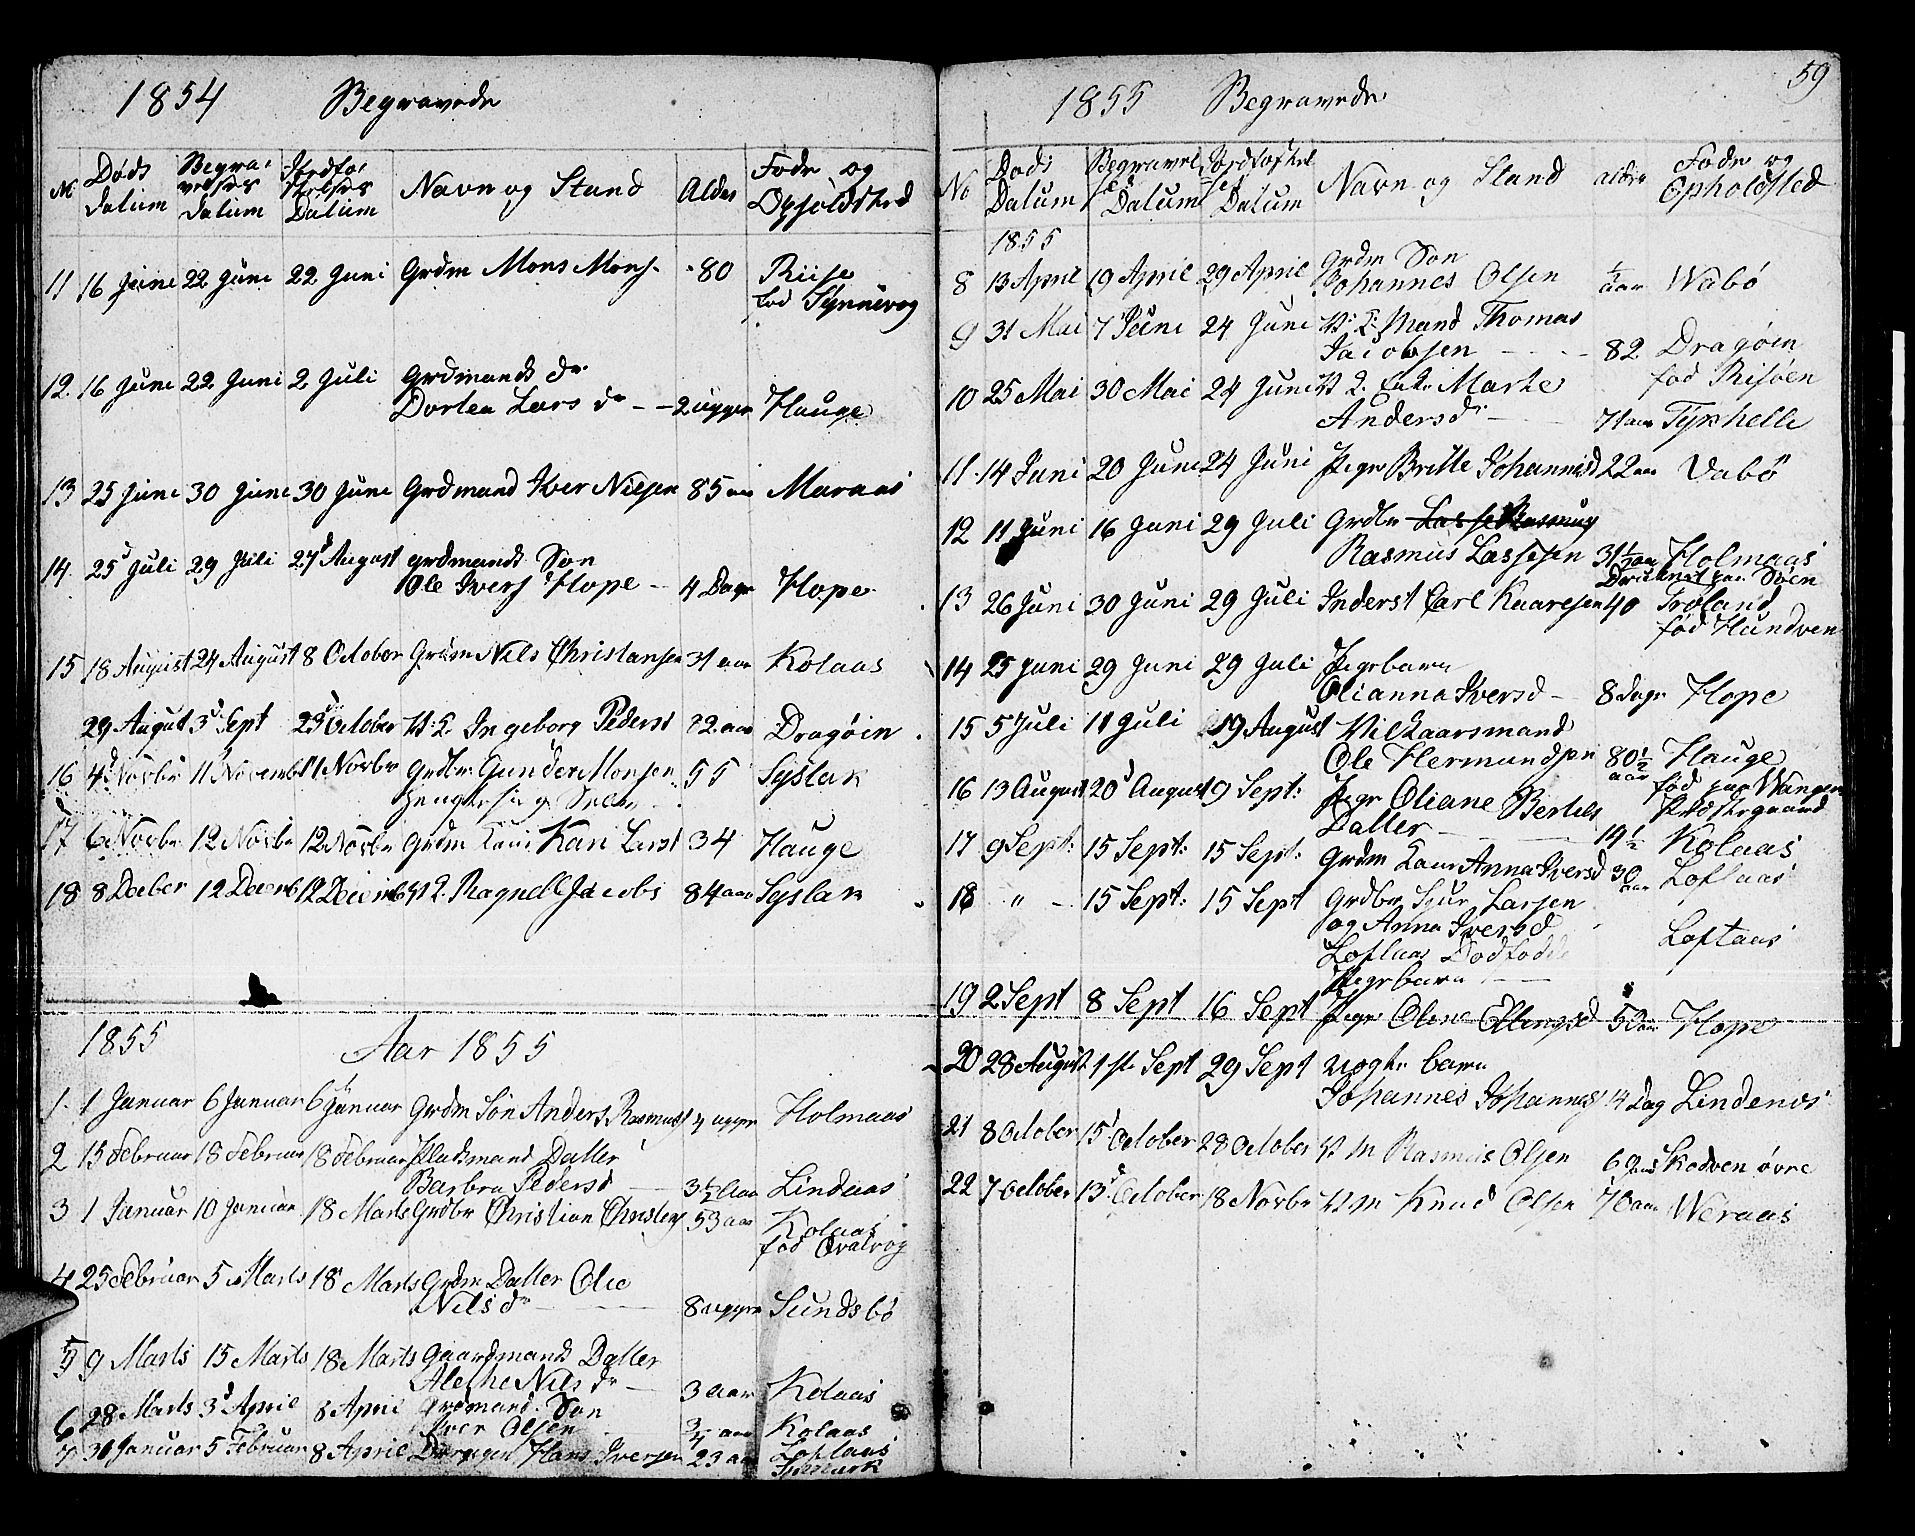 1854 Begravede
No Døds Datum Begravelses Datum Jordfæstelses Datum Navn og Stand Alder Føde og Opholdsted
11 16 Juni 22 Juni 22 Juni Grdm Mons Mons. 80 Riise
fød Synnevog
12. 16 Juni 22 Juni 2 Juli Grdmands Dr
Dortea Lars Dr 2 Ugger Hauge
13 25 Juni 30 Juni 30 Juni Grdmand Iver Nilsen 85 aar Maraas
14. 25 Juli 29 Juli 27d August grdmands Søn
Ole Ivers Hope 4 Dage Hope
15 18 August 24 August 8 October Grdm Nils Christansen 31 aar Kolaas
29 August 3d Sept 29 October Ingeborg Pedersd 72 aar Dragøin
16 4d Novbr 11 Novembr 11 Novbr Grdbr Gunder Monsen 55 Syslak
17 6 Novbr 12 Novbr 12 Novbr Grdm Kone Kari Larsd 34 Hauge
18 8 Decber 12 Decemb 12 Decemb Ragnelle Jacobs 84 aar Syslak
1855 Aar 1855
1. 1 Januar 6 Januar 6 Januar Grdm Søn Anders Rasmuss 4 ugger Holmaas
2 15 Februar 18 Februar 18 Februar Pladsmand Datter
Barbra Pedersd 3 1/2 Aar Lindaas
3 1 Januar 10 Januar 18 Marts Grdbr Christian Christens 53 aar Kolaas
fød Qvalvog
4 25 Februar 5 Marts 18 Marts Grdm Datter Olie
Nils Dr 8 ugger Sundsbø
5 9 Marts 15 Marts 18 Marts Gaardmands Datter
Alethe Nils Dr 3 aar Kolaas
6 28 Marts 3d April 8 April Grdmand Søn
Iver Olsen 3/4 aar Kolaas
7 30 Januar 5 Februar 8 April Hans Iversen 23 aar Loftaas

59
1855 Begravede
No Døds Datum Begravelse Datum Jordfæstelse Datum Navn og Stand alder Føde og Opholdsted
1855
8 13 April 19 April 29 April Grdm Søn
Johannes Olsen 1/2 aar Wabø
9 31 Mai 7 Juni 24 Juni Mand Thomas
Jacobsen 82 Dragøin
fød Risøen
10 25 Mai 30 Mai 24 Juni Enke Marte
Andersdr 71 aar Tyshelle
11. 14 Juni 20 Juni 24 Juni Pige Britte Johannisd 22 aar Vabø
12 11 Juni 16 Juni 29 Juli Grdbr
Rasmus Lassesen 31 1/2 aar Holmaas
Druknet paa Søen
13 26 Juni 30 Juni 29 Juli Inderst Carl Kaaresen 40 Troland
fød Hundven
14 25 Juni 29 Juni 29 Juli Pigebarn
Olianna Iversd 8 dage Hope
15 5 Juli 11 Juli 19 August Vilkaarsmand
Ole Hermundsen 80 1/2 aar Hauge
fød paa Wangen
Præstegaard
16 13 August 20d August 9 Sept: Pige Oliane Bertels
Datter 19 1/2 Kolaas
17 9 Sept: 15 Sept: 15 Sept: Grdm Kone Anna Iversd 30 aar Loftaas
18 " 15 Sept: 15 Sept Grdbr Sjur Larsen
og Anna Iversd
Loftaas Dødfødte
Pigebarn Loftaas
19 2 Sept 8 Sept 16 Sept Pige Oline Ellingsd 5 Hope
20 28 August 1ste Sept 29 Sept uægte barn
Johannes Johannes 14 Dag Lindenes
21 8 October 15 October 28 October Rasmus Olsen Kodven øvre
22 7 October 13d October 18 Novbr Knud Olsen 70 aar Weraas